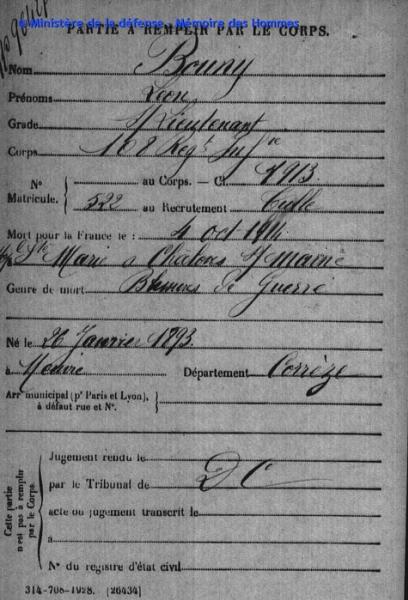 © Ministère de la défense - Mémoire des Hommes
PARTIE À REMPLIR PAR LE CORPS.
Nom Bouny
Prénoms Léon
Grade S/Lieutenant
Corps 162 Reg^t Inf^ie
N° Matricule. { au Corps. — Cl. 1913
522 au Recrutement Tulle
Mort pour la France le : 4 oct 1914
Marie à Chalons S/ Marne
Genre de mort Blessures de Guerre
Né le 26 Janvier 1893
à Département Corrèze
Arr^t municipal (p^r Paris et Lyon), à défaut rue et N°.
Cette partie n'est pas à remplir par le Corps.
Jugement rendu le
par le Tribunal de
acte ou jugement transcrit le
à
N° du registre d'état civil
314-708-1928. [26434]